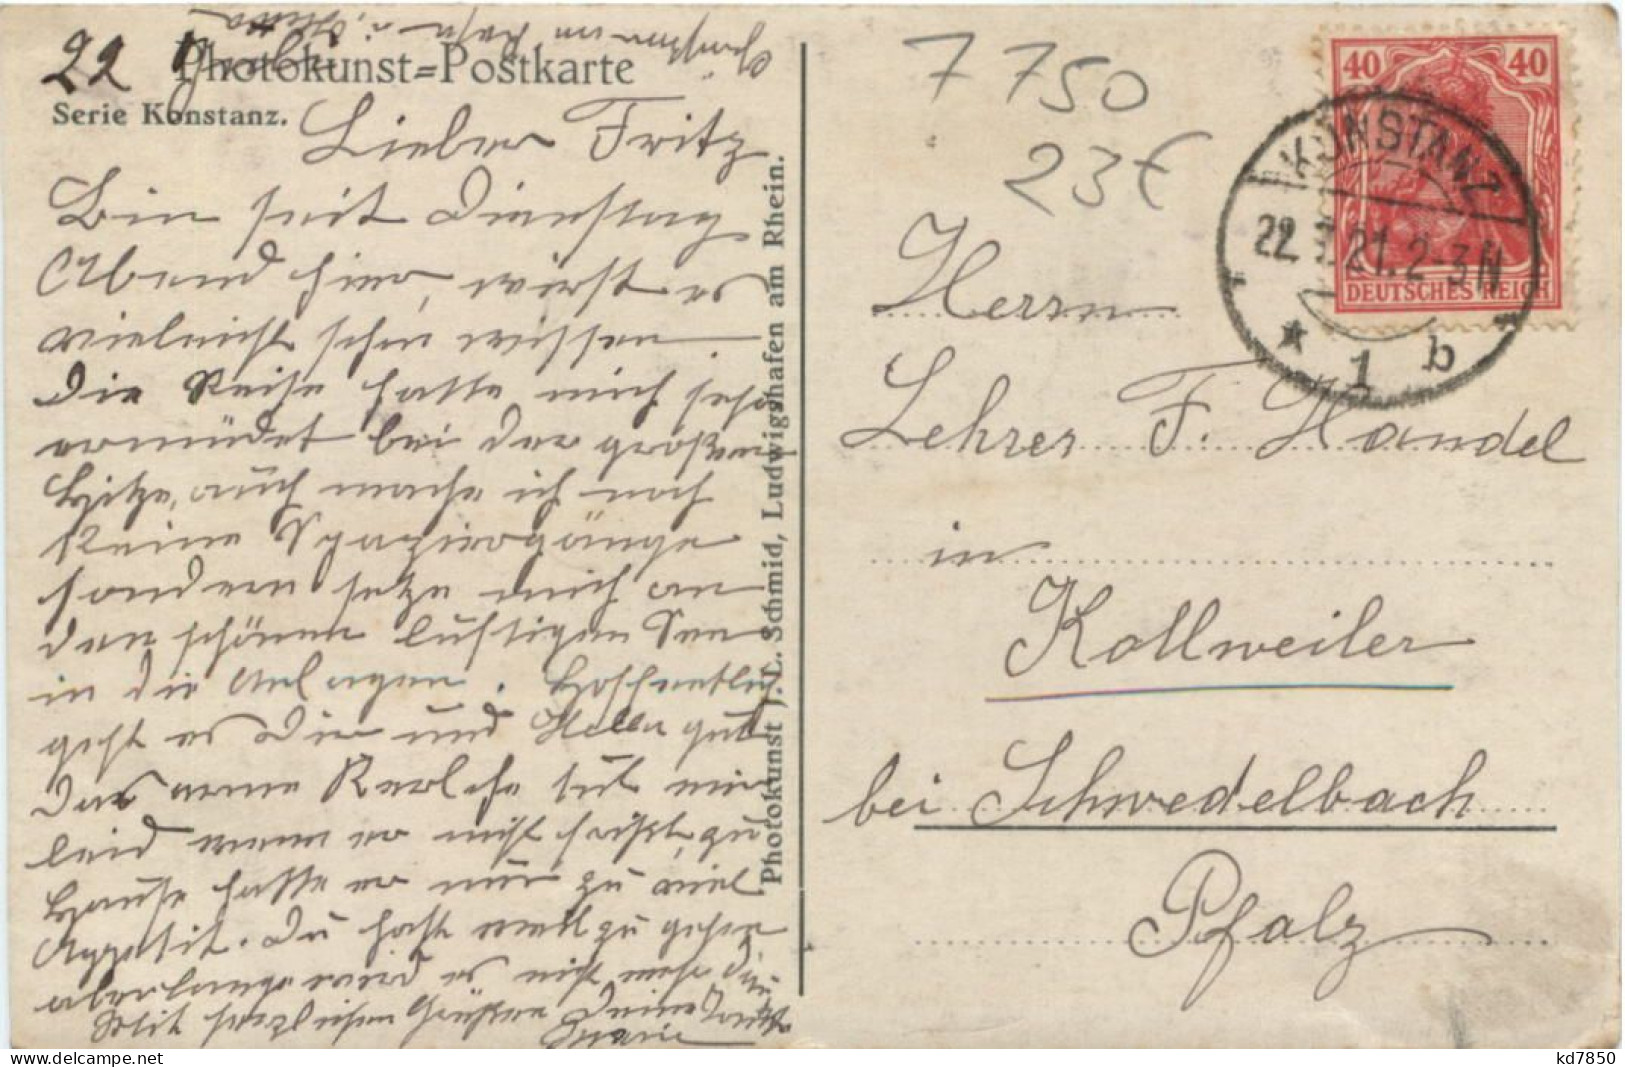 22
Photokunst=Postkarte
Serie Konstanz.
Lieber Fritz
Bin seit Dienstag
Abend hier, wirst es
vielleicht schon wissen.
Die Reise hatte mich sehr
ermüdet bei der großen
Hitze, auch mache ich noch
keine Spaziergänge
sondern setze mich an
den schönen luftigen See
in die Anlagen. Hoffentlich
geht es Dir und Hella gut
Das arme Kerlche tut mir
leid wenn er nicht frißt, zu
Hause hatte er nur zu viel
Appetit. Du hast wohl zu gehen
aber lange wird es nicht mehr
Mit herzlichen Grüßen Deine Tante
Marie
Photokunst J. L. Schmid, Ludwigshafen am Rhein.
7750
23€
40 40
DEUTSCHES REICH
KONSTANZ
22. 21. 2-3 N
* 1 b
Herrn
Lehrer F. Handel
in
Kollweiler
bei Schwedelbach
Pfalz
delcampe.net
kd7850